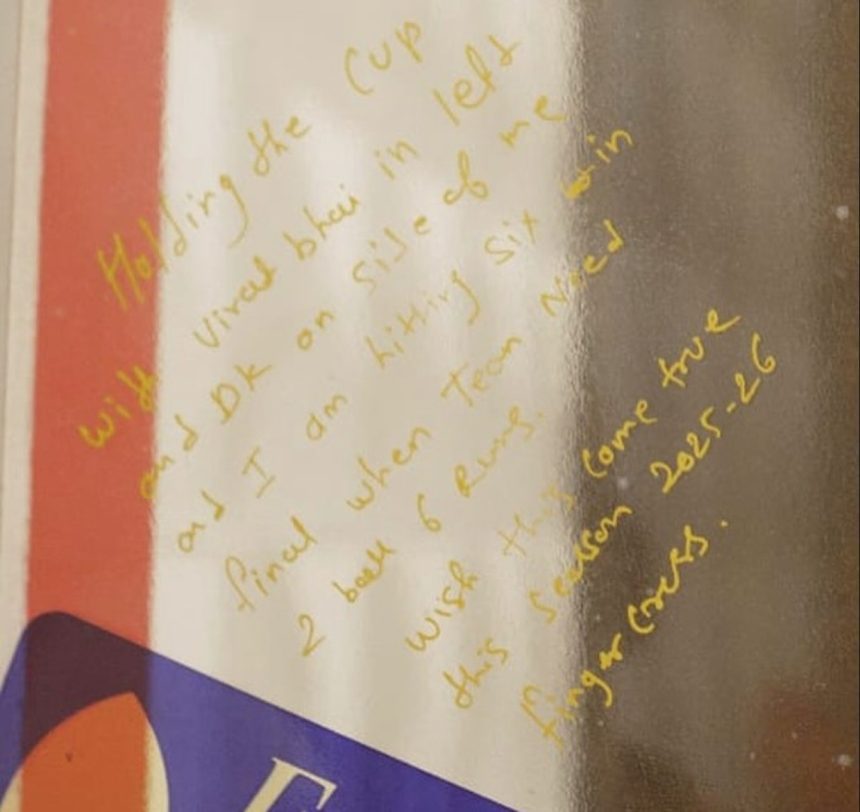 Holding the Cup
with Virat bhai in left
and DK on side of me
and I am hitting six win
final when Team Need
2 ball 6 Runs.
wish this come true
this season 2025-26
finger cross.